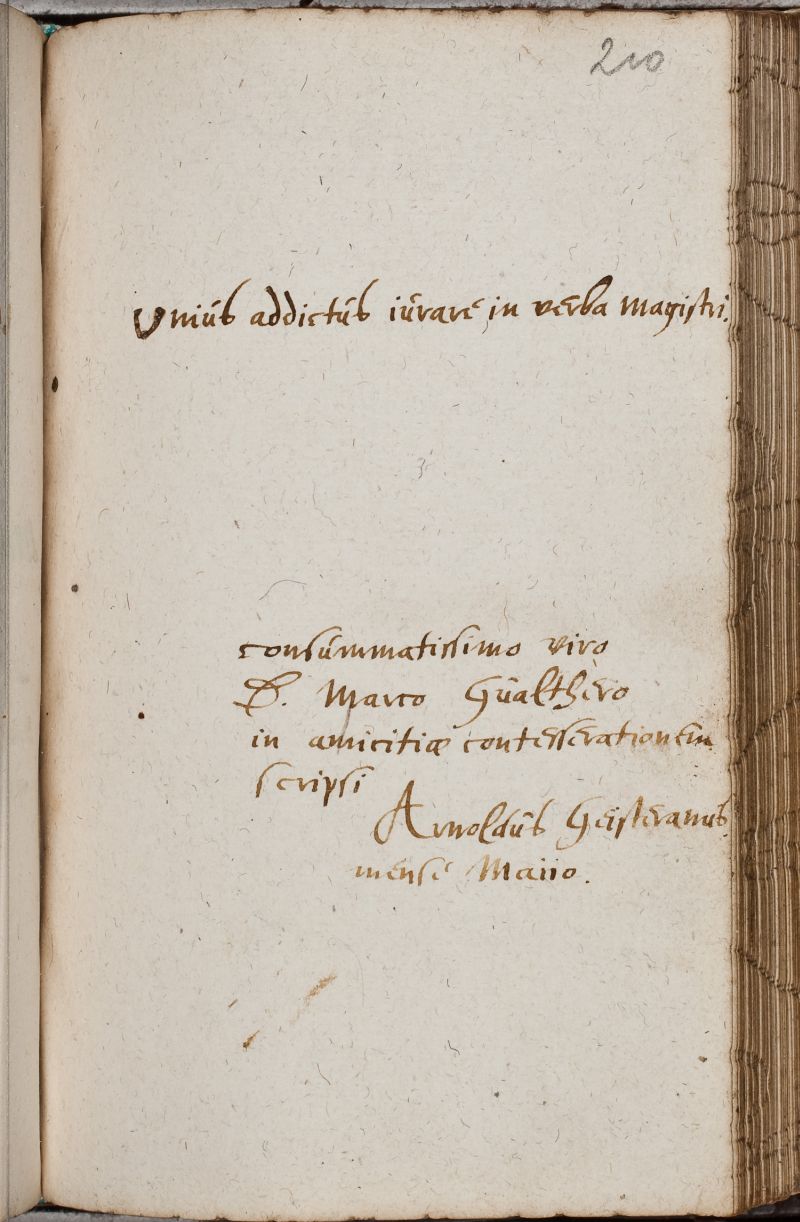 210
Vnius addictus iurare in verba magistri.
consummatissimo viro
D. Marco Gualthero
in amicitiæ contesserationem
scripsi
Arnoldus Geisteranus
mense Maiio.